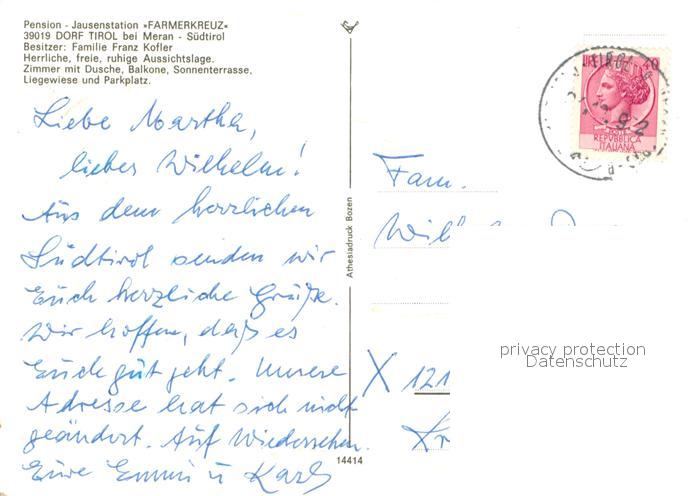 Pension - Jausenstation »FARMERKREUZ«
39019 DORF TIROL bei Meran - Südtirol
Besitzer: Familie Franz Kofler
Herrliche, freie, ruhige Aussichtslage.
Zimmer mit Dusche, Balkone, Sonnenterrasse,
Liegewiese und Parkplatz.
Liebe Martha,
lieber Wilhelm!
Aus dem herrlichen
Südtirol senden wir
Euch herzliche Grüße.
Wir hoffen, daß es
Euch gut geht. Unsere
Adresse hat sich nicht
geändert. Auf Wiedersehen.
Eure Emmi u Karl
Athesiadruck Bozen
14414
LIRE 40
REPVBBLICA
ITALIANA
Fam.
X 121
privacy protection
Datenschutz